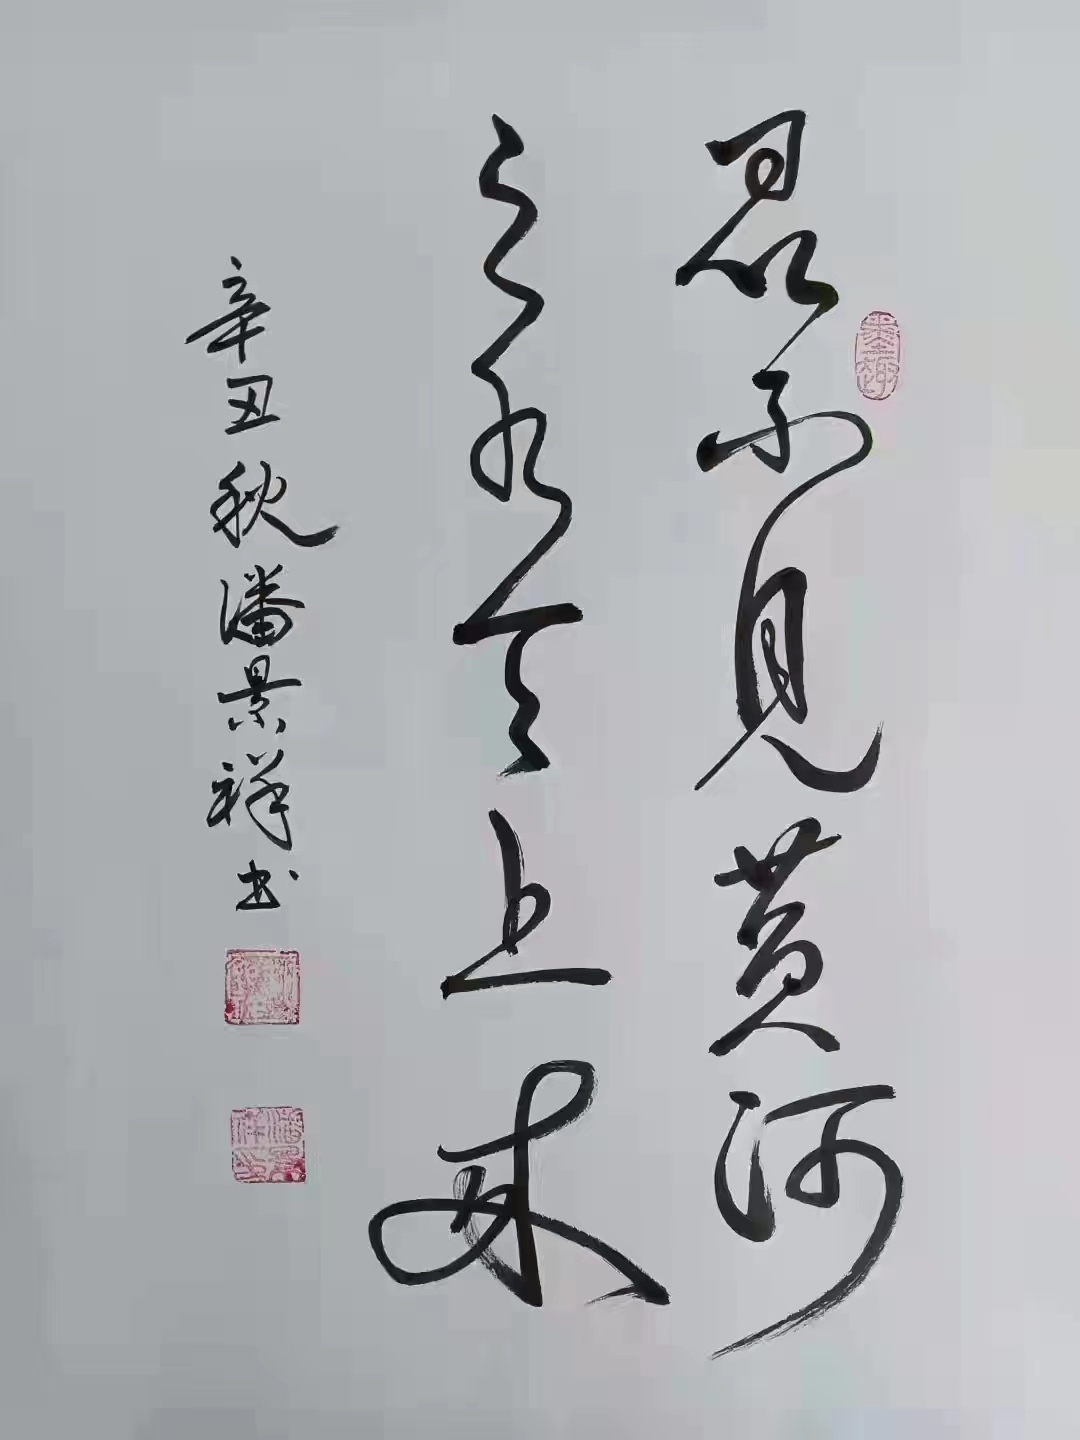 君不見黄河
之水天上来
辛丑秋潘景祥书